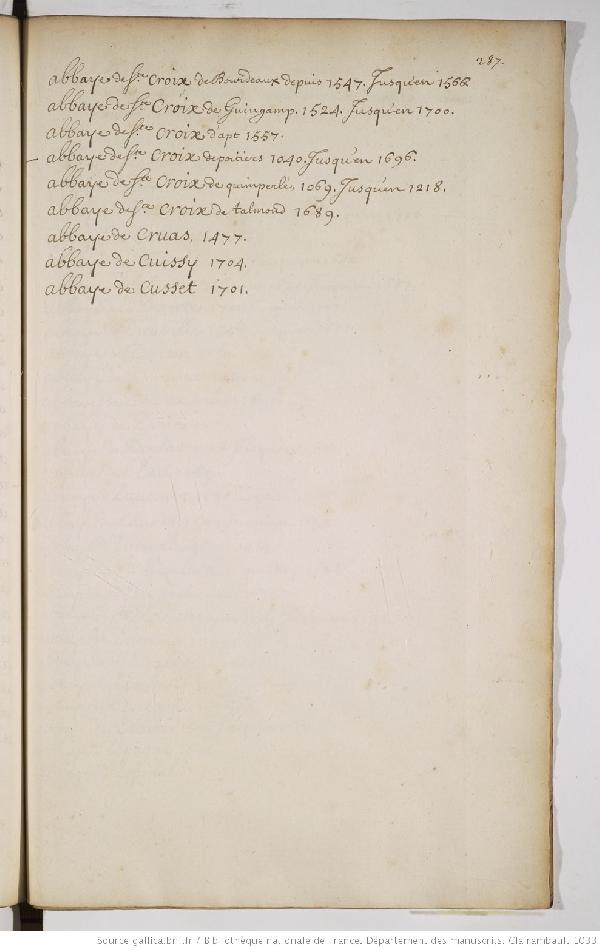 287.
abbaye de s.te Croix de Bourdeaux depuis 1547. Jusqu'en 1566.
abbaye de s.te Croix de Guingamp. 1524. Jusqu'en 1700.
abbaye de s.te Croix d'apt 1557.
abbaye de s.te Croix de poitiers 1040. Jusqu'en 1696.
abbaye de s.te Croix de quimperlé, 1069. Jusqu'en 1218.
abbaye de s.te Croix de talmond 1689.
abbaye de Cruas, 1477.
abbaye de Cuissy 1704.
abbaye de Cusset 1701.
Source gallica.bnf.fr / Bibliothèque nationale de France. Département des manuscrits. Clairambault 1033